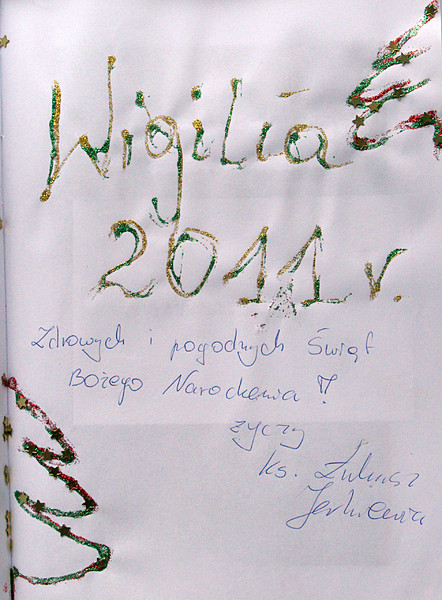 Wigilia
2011 r.
Zdrowych i pogodnych Świąt
Bożego Narodzenia !
życzy
ks. Łukasz